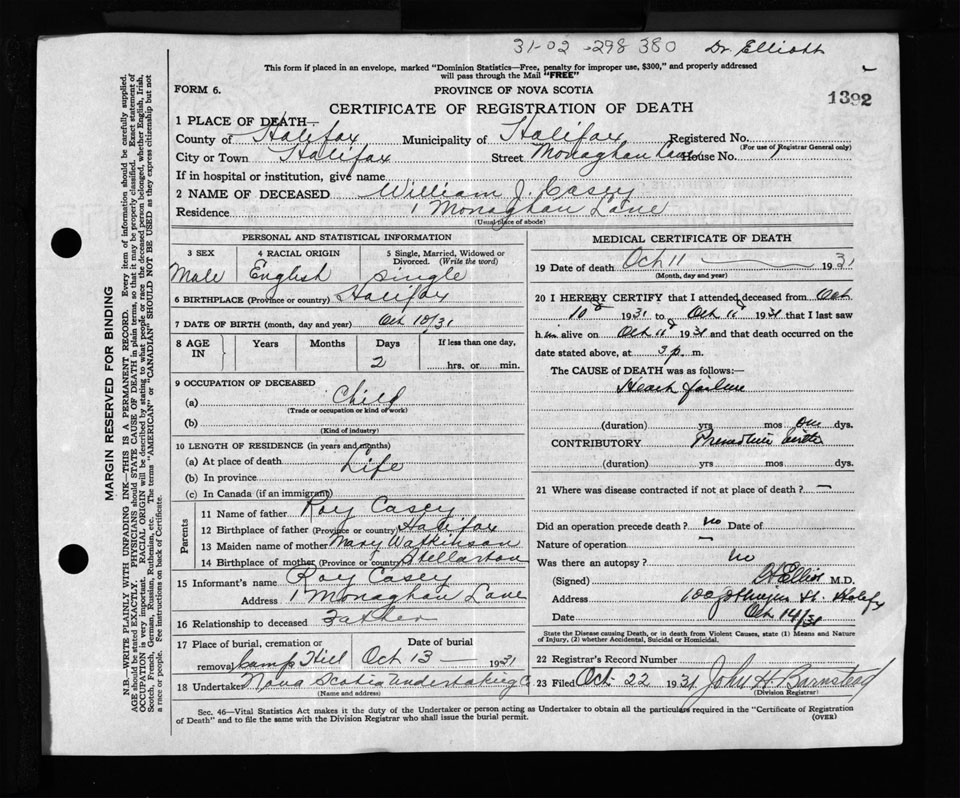 31-02 -298 380 Dr. Elliott
This form if placed in an envelope, marked "Dominion Statistics—Free, penalty for improper use, $300," and properly addressed
will pass through the Mail "FREE"
FORM 6.
PROVINCE OF NOVA SCOTIA
1392
CERTIFICATE OF REGISTRATION OF DEATH
1 PLACE OF DEATH
County of Halifax Municipality of Halifax Registered No.
(For use of Registrar General only)
City or Town Halifax Street Monaghan Lane House No. 1
If in hospital or institution, give name
2 NAME OF DECEASED William J. Casey
Residence 1 Monaghan Lane
(Usual place of abode)
PERSONAL AND STATISTICAL INFORMATION
3 SEX 4 RACIAL ORIGIN 5 Single, Married, Widowed or Divorced. (Write the word)
Male English Single
6 BIRTHPLACE (Province or country) Halifax
7 DATE OF BIRTH (month, day and year) Oct 10/31
8 AGE IN Years Months Days If less than one day,
2 hrs. or min.
9 OCCUPATION OF DECEASED
(a) Child
(Trade or occupation or kind of work)
(b)
(Kind of industry)
10 LENGTH OF RESIDENCE (in years and months)
(a) At place of death Life
(b) In province
(c) In Canada (if an immigrant)
Parents
11 Name of father Roy Casey
12 Birthplace of father (Province or country) Halifax
13 Maiden name of mother Mary Watkinson
14 Birthplace of mother (Province or country) Stellarton
15 Informant's name Roy Casey
Address 1 Monaghan Lane
16 Relationship to deceased Father
17 Place of burial, cremation or removal Camp Hill
Date of burial Oct 13 1931
18 Undertaker Nova Scotia Undertaking Co
(Name and address)
MEDICAL CERTIFICATE OF DEATH
19 Date of death Oct 11 1931
(Month, day and year)
20 I HEREBY CERTIFY that I attended deceased from Oct
10th 1931 to Oct 11th 1931 that I last saw
him alive on Oct 11th 1931 and that death occurred on the
date stated above, at 3 p. m.
The CAUSE of DEATH was as follows:—
Heart failure
(duration) yrs mos one dys.
CONTRIBUTORY Premature birth
(duration) yrs mos. dys.
21 Where was disease contracted if not at place of death? —
Did an operation precede death? no Date of
Nature of operation —
Was there an autopsy? no
(Signed) Elliott M.D.
Address St. Halifax
Date Oct 14/31
State the Disease causing Death, or in death from Violent Causes, state (1) Means and Nature
of Injury, (2) whether Accidental, Suicidal or Homicidal.
22 Registrar's Record Number
23 Filed Oct 22 1931 John H. Barnstead
(Division Registrar)
Sec. 46—Vital Statistics Act makes it the duty of the Undertaker or person acting as Undertaker to obtain all the particulars required in the "Certificate of Registration
of Death" and to file the same with the Division Registrar who shall issue the burial permit.
(OVER)
MARGIN RESERVED FOR BINDING
N.B.—WRITE PLAINLY WITH UNFADING INK—THIS IS A PERMANENT RECORD. Every item of information should be carefully supplied.
AGE should be stated EXACTLY. PHYSICIANS should STATE CAUSE OF DEATH in plain terms, so that it may be properly classified. Exact statement of
OCCUPATION is very important. RACIAL ORIGIN will be described by stating to what people or race the deceased person belonged, whether English, Irish,
Scotch, French, German, Russian, Ruthenian, etc. The terms "AMERICAN" or "CANADIAN" SHOULD NOT BE USED as they express citizenship but not
a race or people. See instructions on back of Certificate.